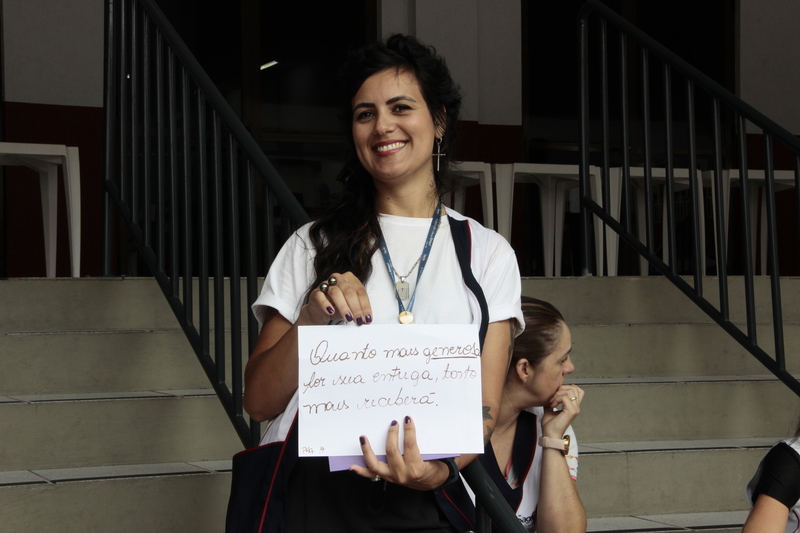 Quanto mais generosa
for sua entrega, tanto
mais receberá.